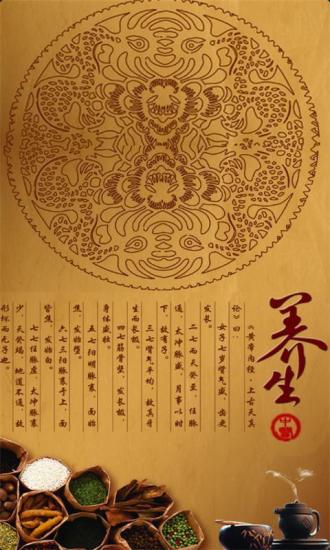 养生
《黄帝内经，上古天真
论》曰：
女子七岁肾气盛，齿更
发长。
二七天癸至，任脉
通，太冲脉盛，月事以时
下，故有子。
三七肾气平均，故真牙
生而长极。
四七筋骨坚，发长极，
身体盛壮。
五七阳明脉衰，面始
焦，发始堕。
六七三阳脉衰于上，面
皆焦，发始白。
七七任脉虚，太冲脉衰
少，天癸竭，地道不通，故
形坏而无子也。